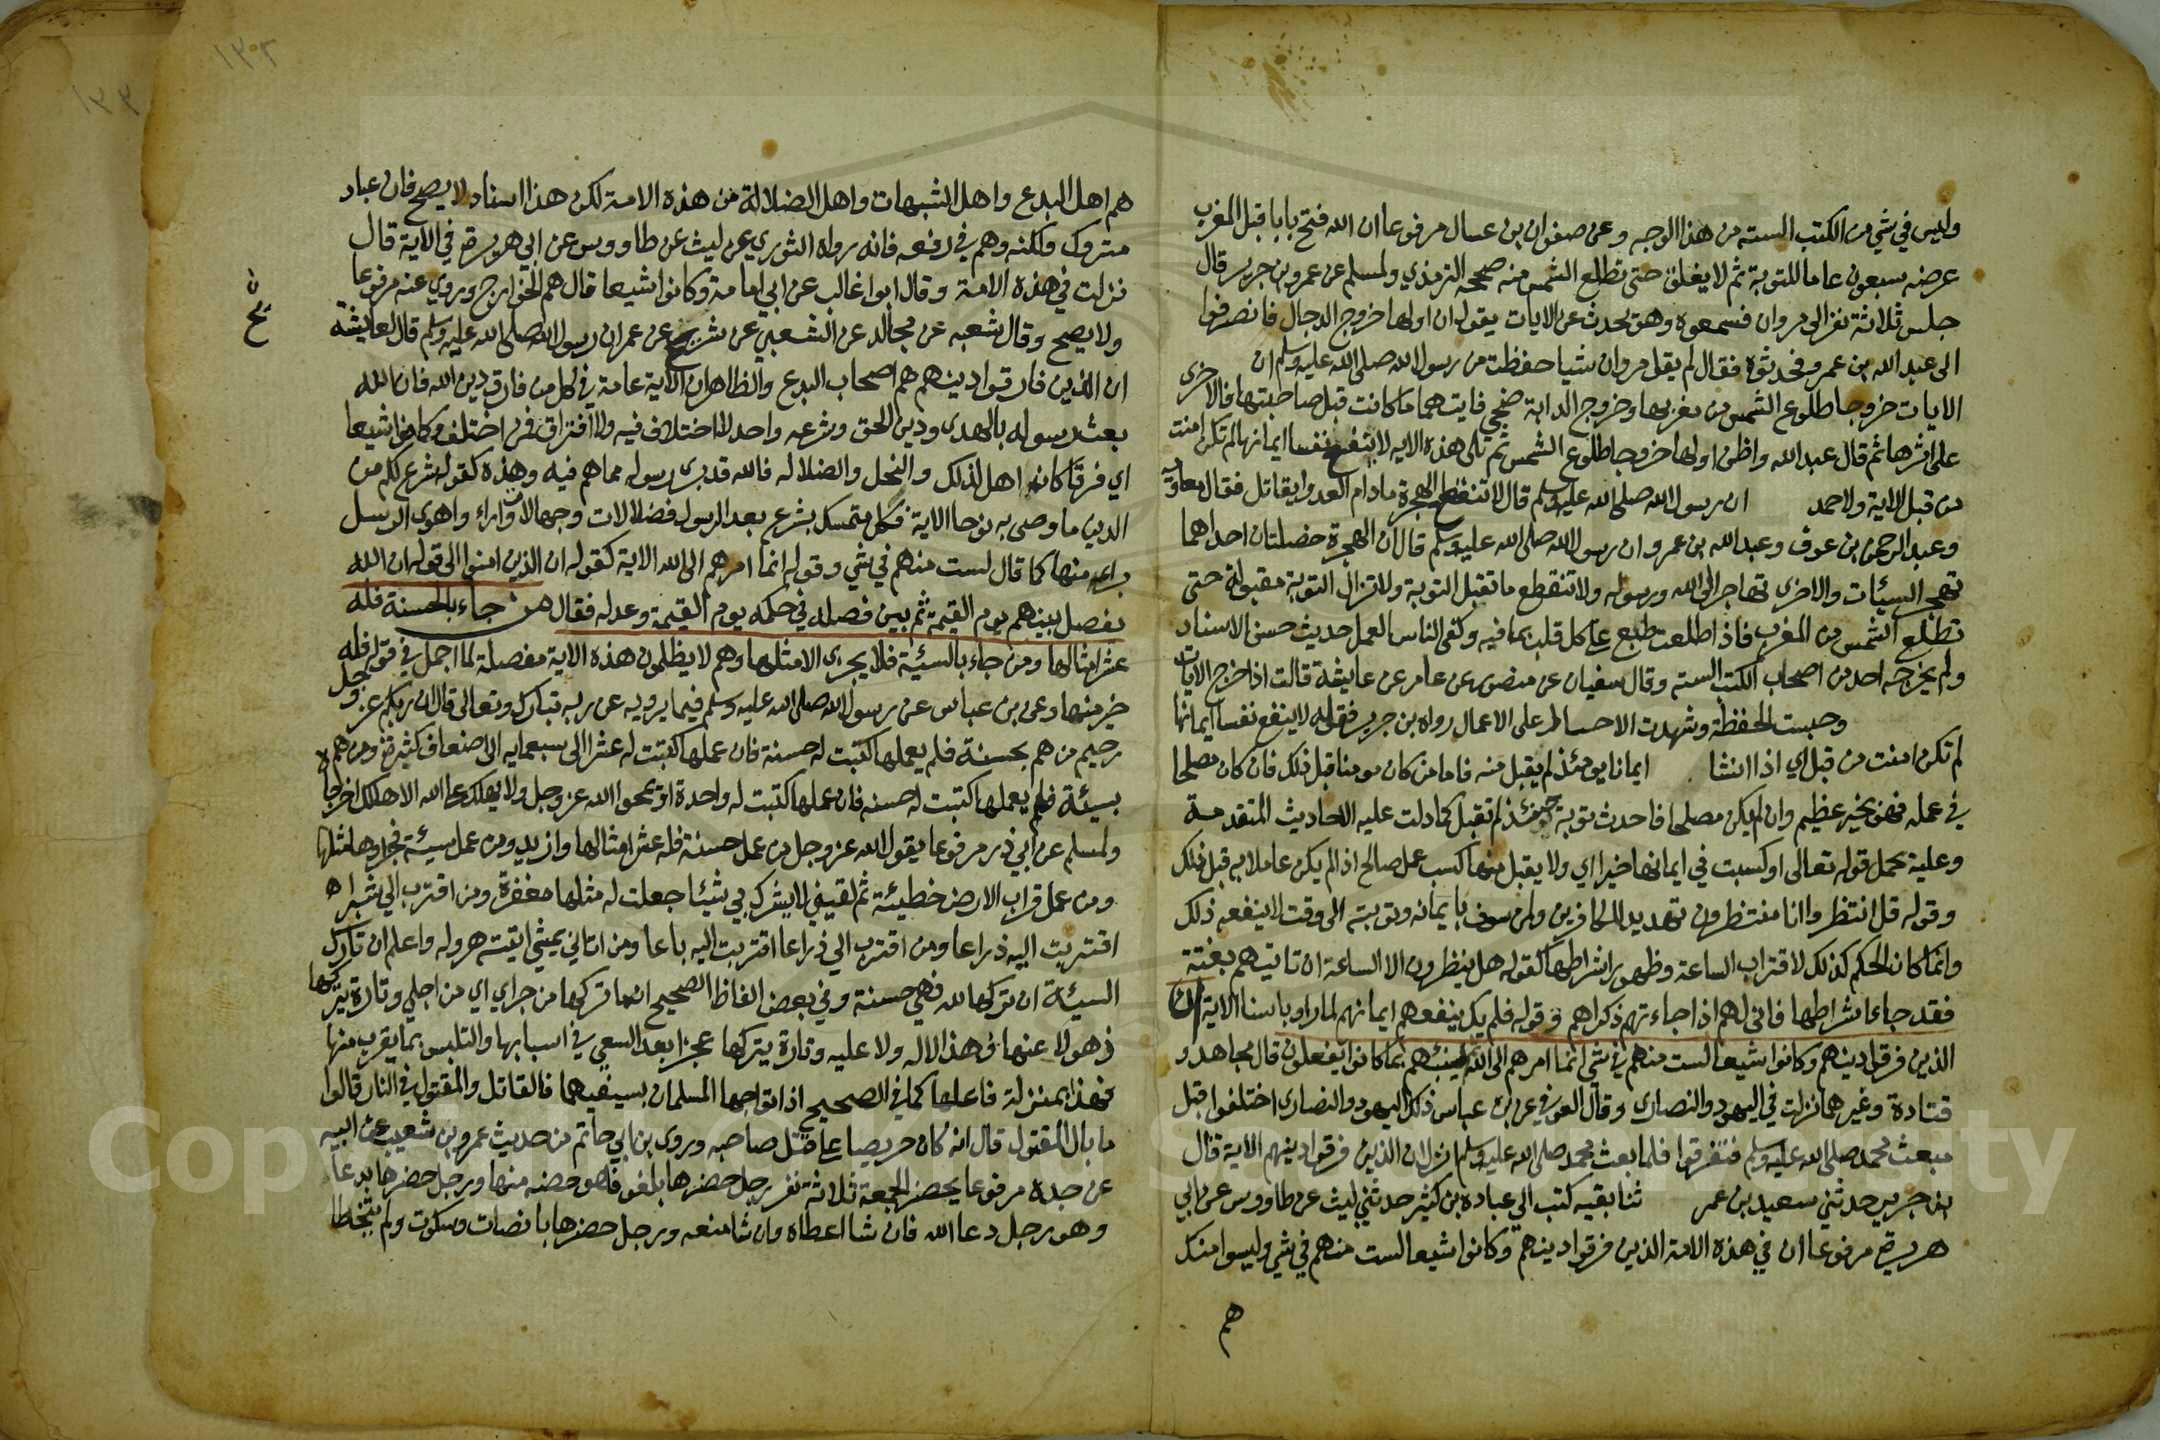 وليس في شي من الكتب السته من هذا الوجه وعن صفوان بن عسال مرفوعا ان الله فتح بابا قبل المغرب
عرضه سبعون عاما للتوبة ثم لا يغلق حتى تطلع الشمس منه صححه الترمذي ولمسلم عن عمرو بن جرير قال
جلس ثلاثة نفر الى مروان فسمعوه وهو يحدث عن الايات يقول ان اولها خروج الدجال فانصرفوا
الى عبد الله بن عمرو فحدثوه فقال لم يقل مروان شيا حفظت من رسول الله صلى الله عليه وسلم ان
الايات خروجا طلوع الشمس من مغربها وخروج الدابة ضحي فايتهما ما كانت قبل صاحبتها فالاخرى
على اثرها ثم قال عبد الله واظن اولها خروجا طلوع الشمس ثم تلى هذه الايه لا ينفع نفسا ايمانها لم تكن امنت
من قبل الاية ولاحمد ان رسول الله صلى الله عليه وسلم قال لا تنقطع الهجرة ما دام العدو يقاتل فقال معاوية
وعبد الرحمن بن عوف وعبد الله بن عمرو ان رسول الله صلى الله عليه وسلم قال ان الهجرة خصلتان احداهما
تهجر السيئات والاخرى تهاجر الى الله ورسوله ولا تنقطع ما تقبل التوبة ولا تزال التوبة مقبولة حتى
تطلع الشمس من المغرب فاذا طلعت طبع على كل قلب بما فيه وكفى الناس العمل حديث حسن الاسناد
ولم يخرجه احد من اصحاب الكتب السته وقال سفيان عن منصور عن عامر عن عايشة قالت اذا خرج الايات
وحبست الحفظة وشهدت الاجساد على الاعمال رواه بن جرير فقوله لا ينفع نفسا ايمانها
لم تكن امنت من قبل اي اذا انشا ايمانا يومئذ لم يقبل منه فاما من كان مومنا قبل ذلك فان كان مصلحا
في عمله فهو بخير عظيم وان لم يكن مصلحا فاحدث توبة حينئذ لم تقبل كما دلت عليه الاحاديث المتقدمة
وعلية يحمل قوله تعالى او كسبت في ايمانها خيرا اي ولا يقبل منها كسب عمل صالح اذا لم يكن عاملا به قبل ذلك
وقوله قل انتظروا انا منتظرون تهديد للكافرين ولمن سوف بايمانه وتوبته الى وقت لا ينفعه ذلك
وانما كان الحكم كذلك لاقتراب الساعة وظهور اشراطها كقوله هل ينظرون الا الساعة ان تاتيهم بغتة
فقد جاء اشراطها فانى لهم اذا جاءتهم ذكراهم وقوله فلم يك ينفعهم ايمانهم لما راوا باسنا الاية ان
الذين فرقوا دينهم وكانوا شيعا لست منهم في شي انما امرهم الى الله ثم ينبئهم بما كانوا يفعلون قال مجاهد و
قتادة وغيرهما نزلت في اليهود والنصارى وقال العوفي عن ابن عباس ذلك اليهود والنصارى اختلفوا قبل
مبعث محمد صلى الله عليه وسلم فتفرقوا فلما بعث محمد صلى الله عليه وسلم انزل ان الذين فرقوا دينهم الاية قال
ابن جرير حدثني سعيد بن عمر ثنا بقيه كتب الي عباده بن كثير حدثني ليث عن طاووس عن ابي
هريرة مرفوعا ان في هذه الامة الذين فرقوا دينهم وكانوا شيعا لست منهم في شي وليسوا منك
هم
١٣٢
١٣٣
هم اهل البدع واهل الشبهات واهل الضلالة من هذه الامة لكن هذا اسناد لا يصح فان عباد
متروك ولكنه وهم في رفعه فانه رواه الثوري عن ليث عن طاووس عن ابي هريرة في الاية قال
نزلت في هذه الامة وقال ابوا غالب عن ابي امامة وكانوا شيعا قال هم الخوارج وروي عنه مرفوعا
ولا يصح وقال شعبه عن مجالد عن الشعبي عن شريح عن عمر ان رسول الله صلى الله عليه وسلم قال لعايشة
ان الذين فارقوا دينهم هم اصحاب البدع والظاهر ان الاية عامة في كل من فارق دين الله فان الله
بعث رسوله بالهدى ودين الحق وشرعه واحد لا اختلاف فيه ولا افتراق فمن اختلف وكانوا شيعا
اي فرقا كانه اهل لذلك والنحل والضلاله فالله قد برى رسوله مما هم فيه وهذه كقوله شرع لكم من
الدين ما وصى به نوحا الاية فكل متمسك بشرع بعد الرسول فضلالات وجهالات واراء واهوي الرسل
براء منها كما قال لست منهم في شي وقوله انما امرهم الى الله الاية كقوله ان الذين امنوا الى قوله ان الله
يفصل بينهم يوم القيمة ثم بين فصله في حكمه يوم القيمة وعدله فقال من جاء بالحسنة فله
عشر امثالها ومن جاء بالسيئة فلا يجزى الا مثلها وهم لا يظلمون هذه الاية مفصلة لما اجمل في قوله فله
خير منها وعن بن عباس عن رسول الله صلى الله عليه وسلم فيما يرويه عن ربه تبارك وتعالى قال ان ربكم عز وجل
رحيم من هم بحسنة فلم يعملها كتبت له حسنة فان عملها كتبت له عشرا الى سبعمايه الى اضعاف كثيرة ومن هم
بسيئة فلم يعملها كتبت له حسنه فان عملها كتبت له واحدة او يمحوا الله عز وجل ولا يهلك على الله الا هالك اخرجا
ولمسلم عن ابي ذر مرفوعا يقول الله عز وجل من عمل حسنة فله عشر امثالها وازيد ومن عمل سيئة فجزاءها مثلها
ومن عمل قراب الارض خطيئة ثم لقيني لا يشرك بي شيئا جعلت له مثلها مغفرة ومن اقترب الي شبرا
اقتربت اليه ذراعا ومن اقترب الي ذراعا اقتربت اليه باعا ومن اتاني يمشي اتيته هروله واعلم ان تارك
السيئة ان تركها لله فهي حسنة وفي بعض الفاظ الصحيح انما تركها من جراي اي من اجلي وتارة يتركها
ذهولا عنها فهذا لا له ولا عليه وتارة يتركها عجزا بعد السعي في اسبابها والتلبس بما يقرب منها
فهذا بمنزلة فاعلها كما في الصحيح اذا تواجها المسلمان بسيفيهما فالقاتل والمقتول في النار قالوا
ما بال المقتول قال انه كان حريصا على قتل صاحبه وروى بن ابي حاتم من حديث عمرو بن شعيب عن ابيه
عن جده مرفوعا يحضر الجمعة ثلاثة نفر رجل حضرها بلغو فهو حضه منها ورجل حضرها بدعاء
وهو رجل دعا الله فان شا اعطاه وان شا منعه ورجل حضرها بانصات وسكوت ولم يتخطا